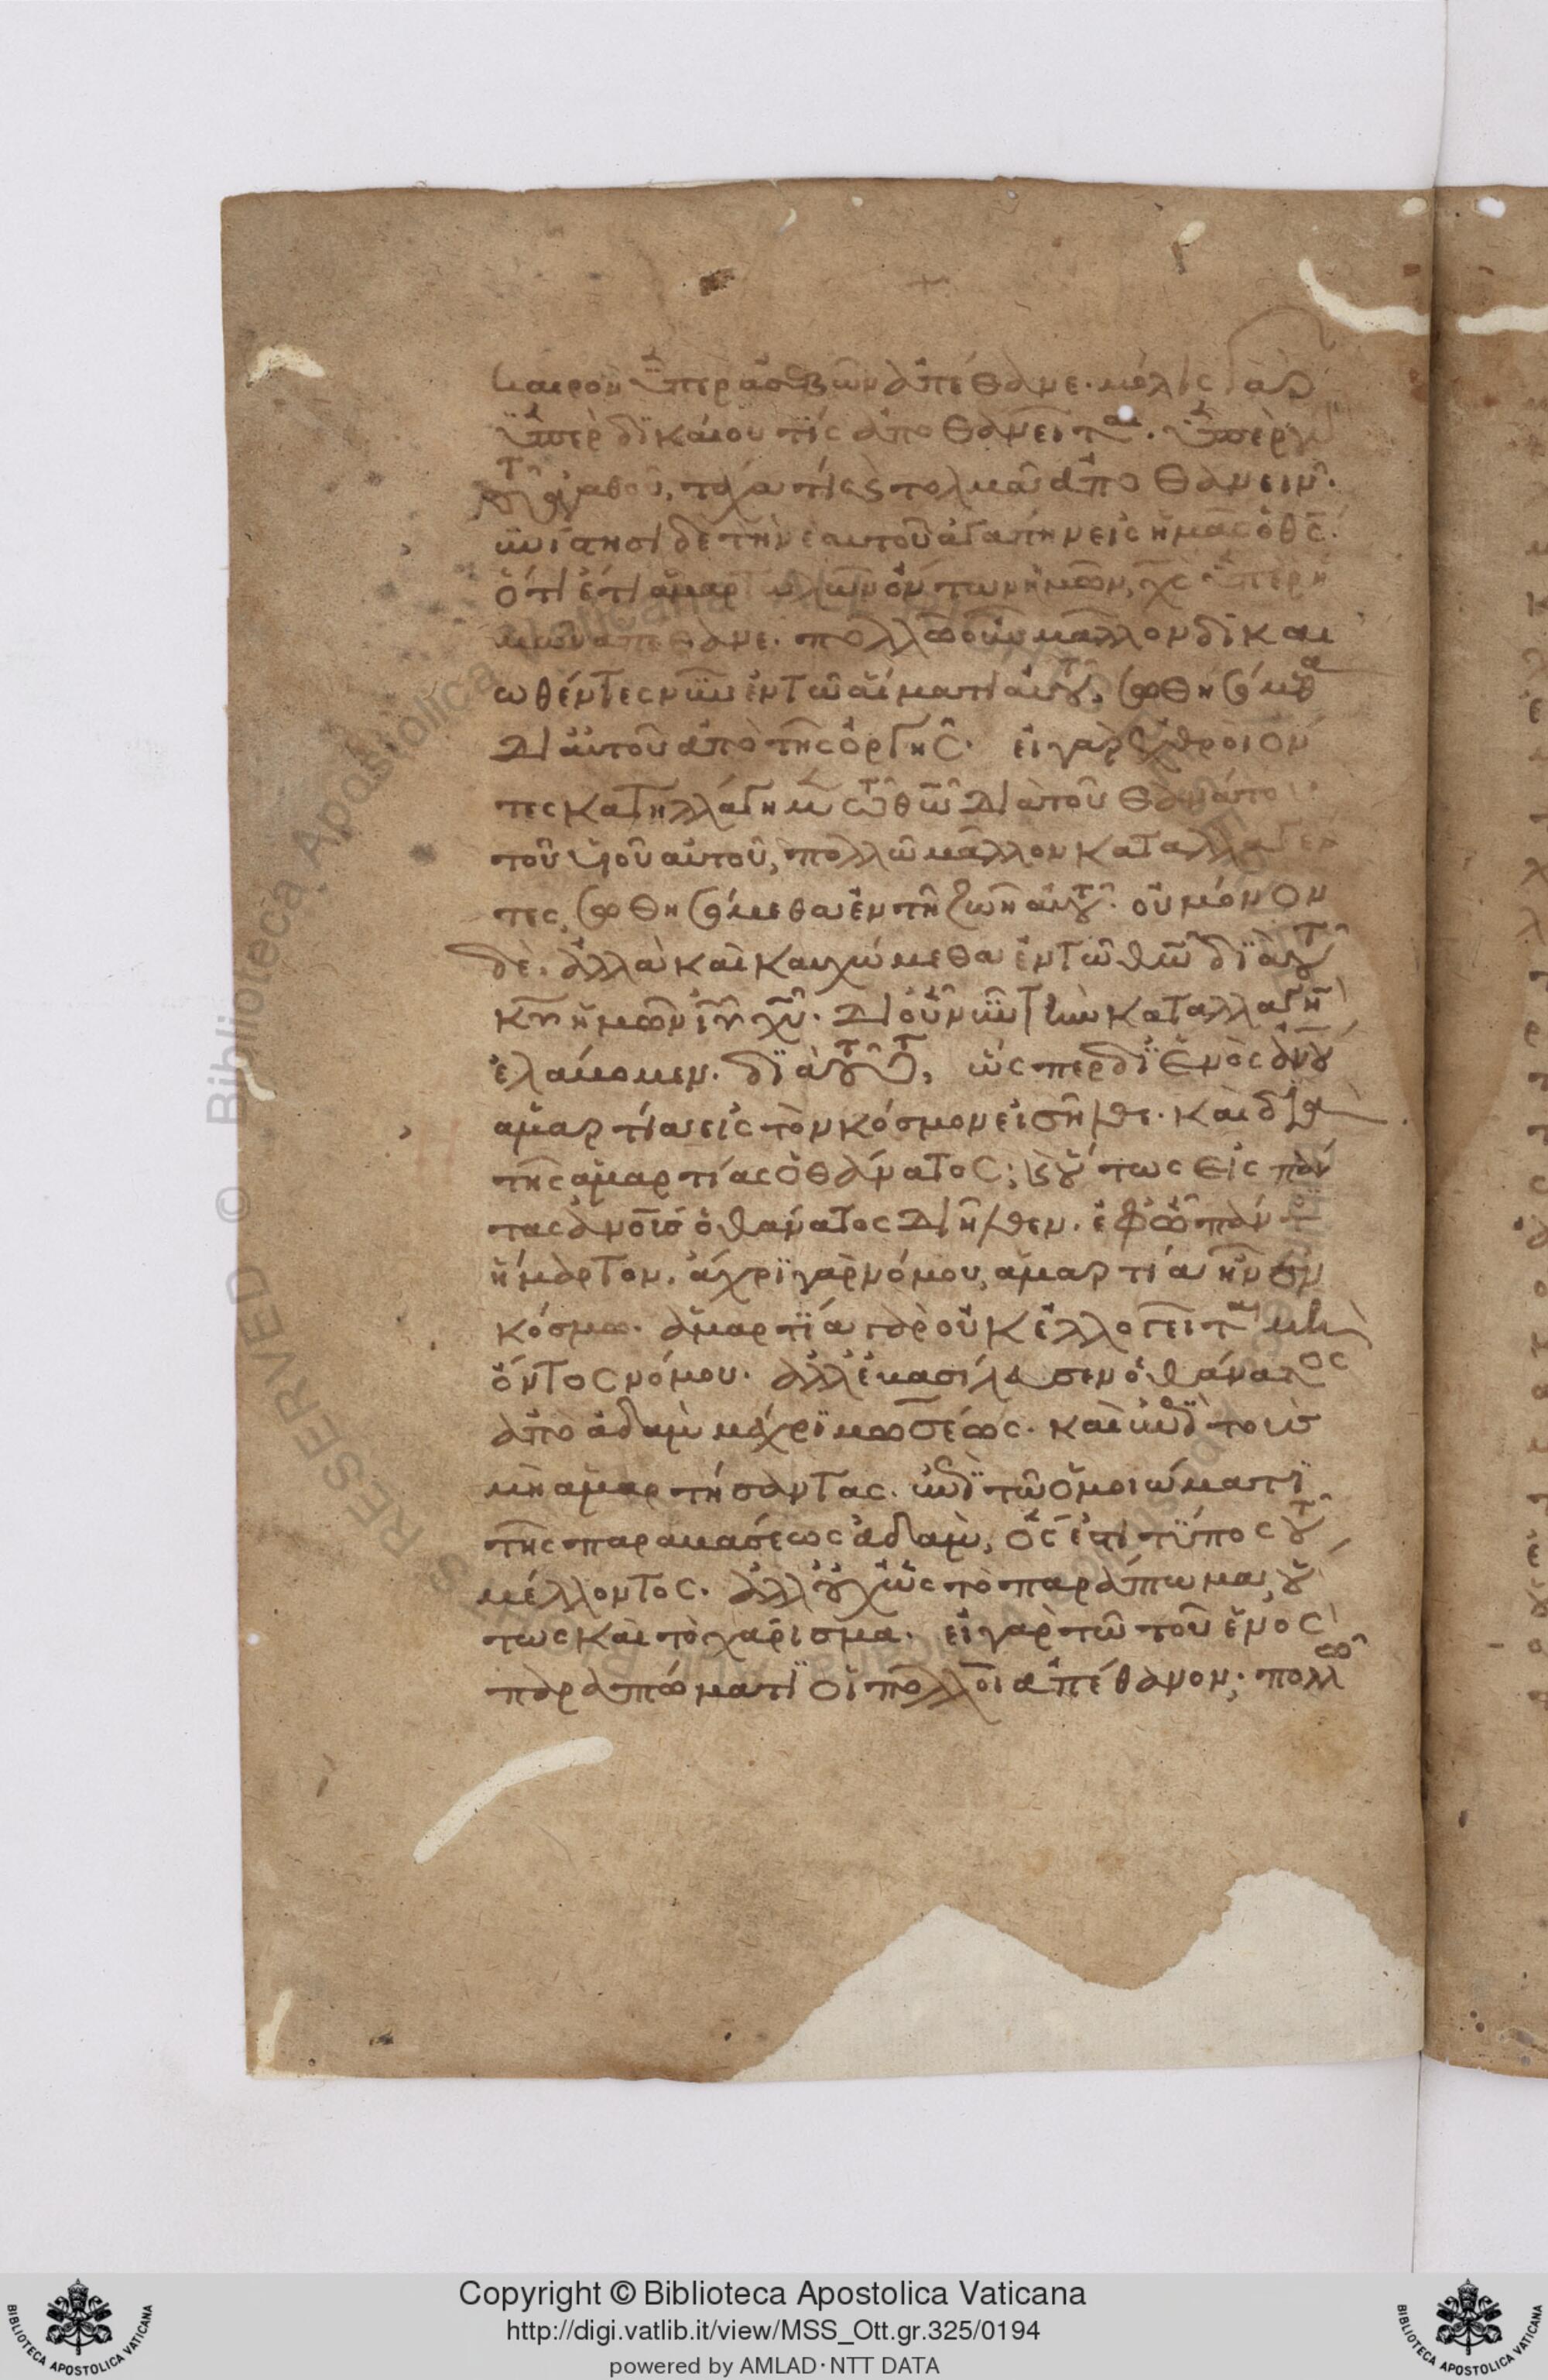 καιρὸν ὑπὲρ ἀσεβῶν ἀπέθανε. μόλις γὰρ
ὑπὲρ δικαίου τίς ἀποθανεῖται. ὑπὲρ γὰρ
τοῦ ἀγαθοῦ, τάχα τίς ϗ τολμᾶ ἀποθανεῖν.
συνίστησι δὲ τὴν ἑαυτοῦ ἀγάπην εἰς ἡμᾶς ὁ θς.
ὅτι ἔτι ἁμαρτωλῶν ὄντων ἡμῶν, χς ὑπὲρ ἡ
μῶν ἀπέθανε. πολλῶ οὖν μᾶλλον δικαι
ωθέντες νῦν ἐν τῶ αἵματι αὐτοῦ, σωθησόμεθα
δι αὐτοῦ ἀπὸ τῆς ὀργῆς. εἰ γὰρ ἐχθροὶ ὄν
τες κατηλλάγημεν τῶ θω διὰ τοῦ θανάτου
τοῦ υἱοῦ αὐτοῦ, πολλῶ μᾶλλον καταλλαγέν
τες, σωθησόμεθα ἐν τῆ ζωῆ αὐτοῦ. οὐ μόνον
δὲ. ἀλλὰ καὶ καυχώμεθα ἐν τῶ θω διὰ τοῦ
κυ ἡμῶν ιυ χυ. δι οὗ νῦν τὴν καταλλαγὴν
ἐλάβομεν. διὰ τοῦτο, ὥσπερ δι ἑνὸς ανου
ἁμαρτία εἰς τὸν κόσμον εἰσῆλθε. καὶ διὰ
τῆς ἁμαρτίας ὁ θάνατος; ϗ οὕτως εἰς πάν
τας ανοις ὁ θάνατος διῆλθεν. ἐφ ὧ πάντ
ἥμαρτον. ἄχρι γὰρ νόμου, ἁμαρτία ἦν ἐν
κόσμω. ἁμαρτία γὰρ οὐκ ἐλλογεῖται μὴ
ὄντος νόμου. ἀλλ ἐβασίλευσεν ὁ θάνατος
ἀπὸ ἀδὰμ μέχρι μωσέως. καὶ ἐπὶ τοὺς
μὴ ἁμαρτήσαντας. ἐπὶ τῶ ὁμοιώματι
τῆς παραβάσεως ἀδὰμ, ὅς ἐστι τύπος τοῦ
μέλλοντος. ἀλλ οὐχ ὡς τὸ παράπτωμα, οὕ
τως καὶ τὸ χάρισμα. εἰ γὰρ τῶ τοῦ ἑνὸς
παραπτώματι οἱ πολλοὶ ἀπέθανον; πολλῶ
Copyright © Biblioteca Apostolica Vaticana
http://digi.vatlib.it/view/MSS_Ott.gr.325/0194
powered by AMLAD·NTT DATA